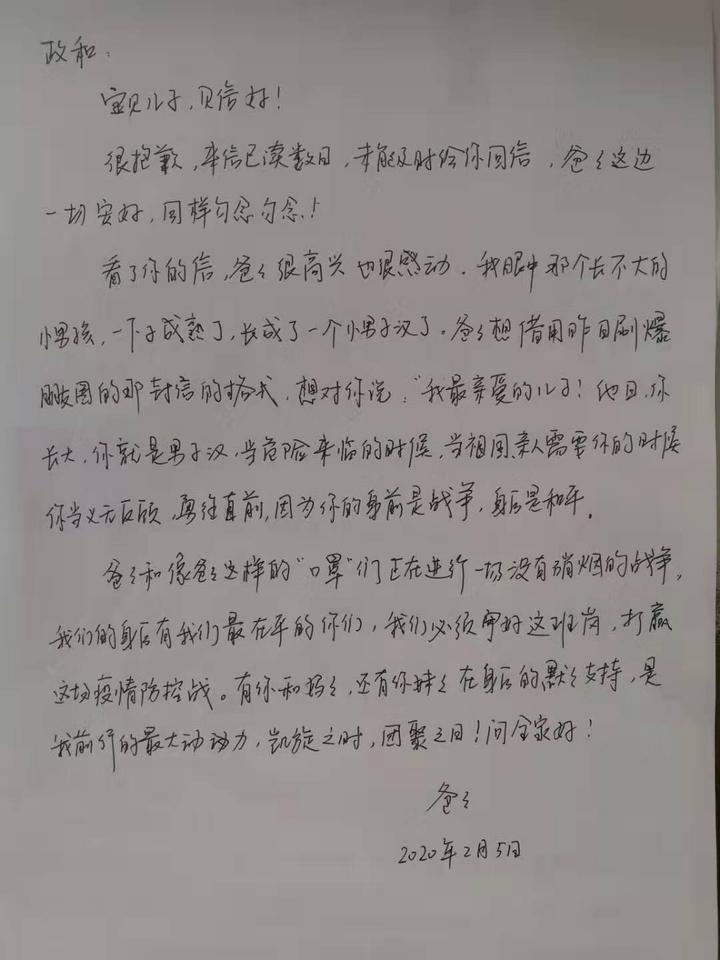 政和：
宝贝儿子，见信好！
很抱歉，来信已读数日，未能及时给你回信，爸爸这边
一切安好，同样勿念勿念！
看了你的信，爸爸很高兴也很感动．我眼中那个长不大的
小男孩，一下子成熟了，长成了一个小男子汉了。爸爸想借用昨日刷爆
朋友圈的那封信的格式，想对你说："我最亲爱的儿子！他日，你
长大，你就是男子汉，当危险来临的时候，当祖国亲人需要你的时候
你当义无反顾，勇往直前，因为你的身前是战争，身后是和平．
爸爸和像爸爸这样的"口罩"们正在进行一场没有硝烟的战争，
我们的身后有我们最在乎的你们，我们必须守好这班岗，打赢
这场疫情防控战。有你和妈妈，还有你妹妹在身后的默默支持，是
我前行的最大动动力，凯旋之时，团聚之日！问全家好！
爸爸
2020年2月5日